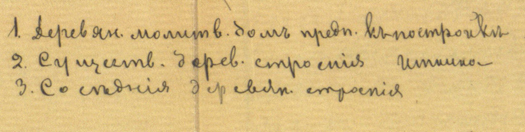 1. Деревян. молитв. домъ предп. къ постройкѣ
2. Существ. дерев. строенія
3. Соседнія деревян. строенія